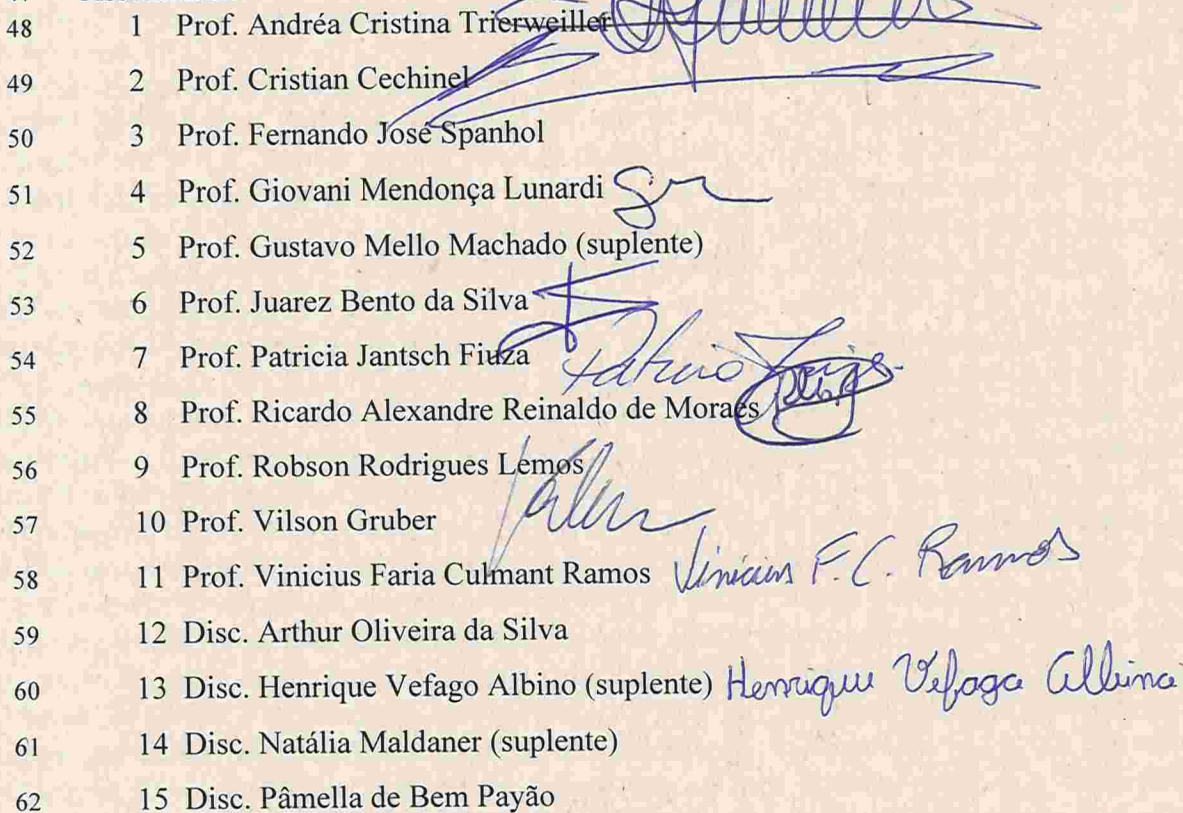 48 1 Prof. Andréa Cristina Trierweiller
49 2 Prof. Cristian Cechinel
50 3 Prof. Fernando José Spanhol
51 4 Prof. Giovani Mendonça Lunardi
52 5 Prof. Gustavo Mello Machado (suplente)
53 6 Prof. Juarez Bento da Silva
54 7 Prof. Patricia Jantsch Fiuza
55 8 Prof. Ricardo Alexandre Reinaldo de Moraes
56 9 Prof. Robson Rodrigues Lemos
57 10 Prof. Vilson Gruber
58 11 Prof. Vinicius Faria Culmant Ramos Vinicius F.C. Ramos
59 12 Disc. Arthur Oliveira da Silva
60 13 Disc. Henrique Vefago Albino (suplente) Henrique Vefago Albino
61 14 Disc. Natália Maldaner (suplente)
62 15 Disc. Pâmella de Bem Payão